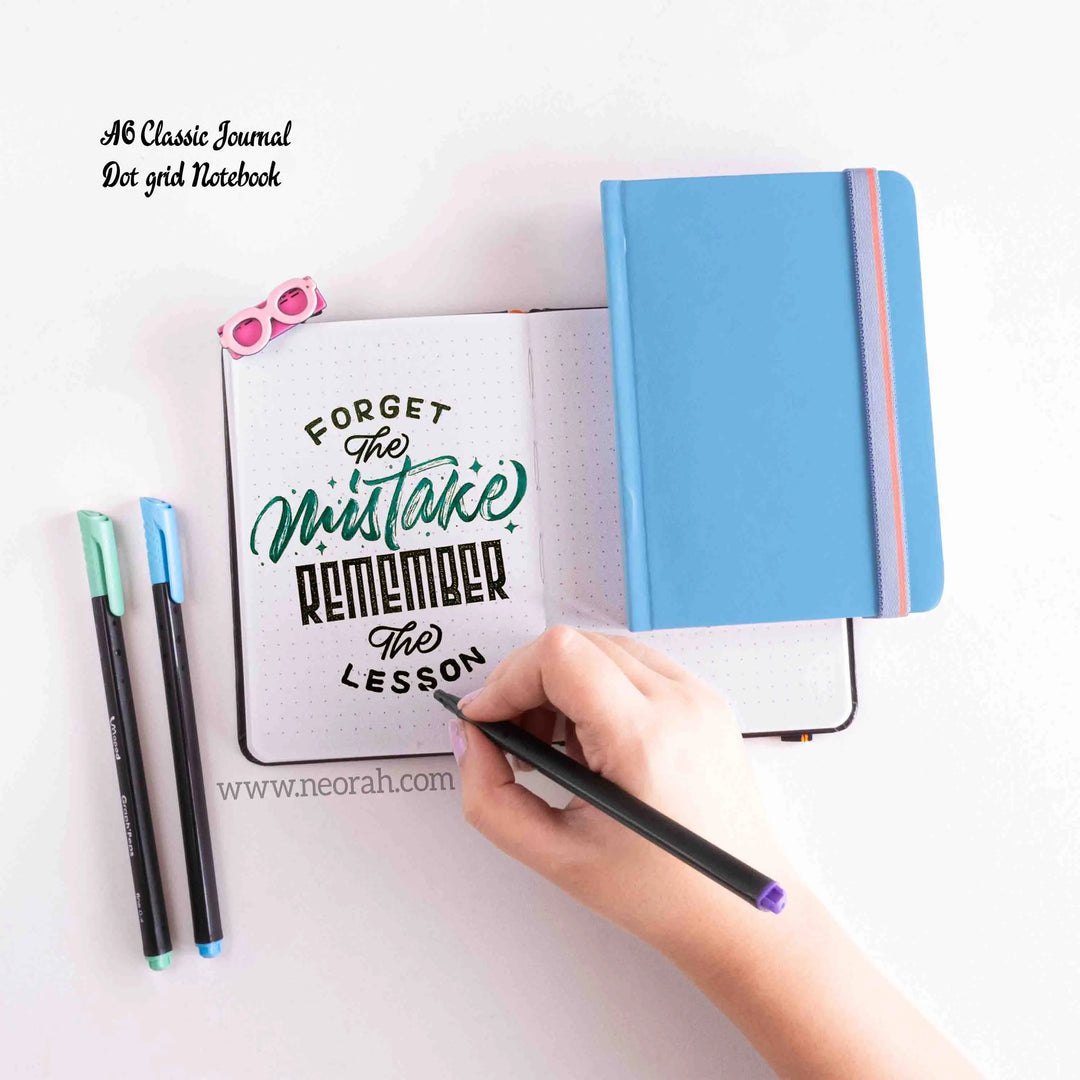 A6 Classic Journal
Dot grid Notebook
FORGET
The
mistake
REMEMBER
The
LESSON
www.neorah.com
Maped
Graph'Peps